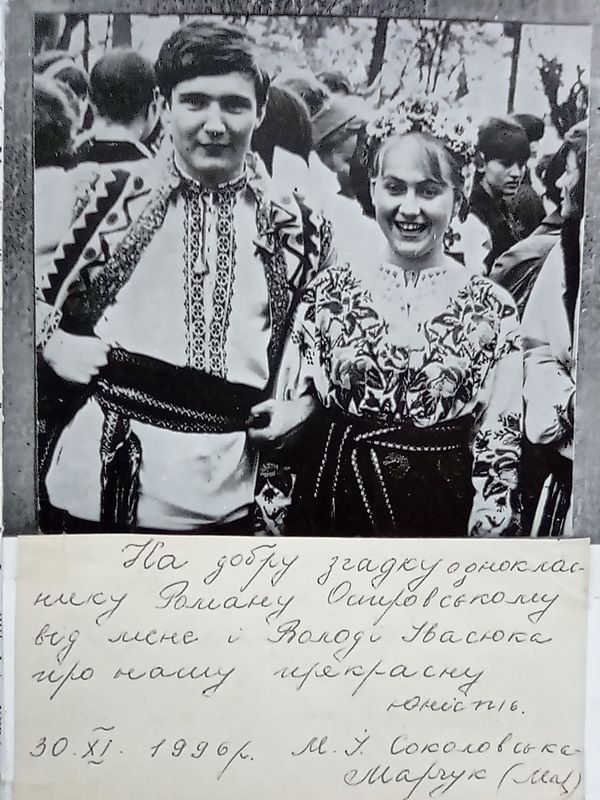 На добру згадку одноклас-
нику Роману Островському
від мене і Володі Івасюка
про нашу прекрасну
юність.
30. XI. 1996р. М. І. Соколовська-
Марчук (Мац)